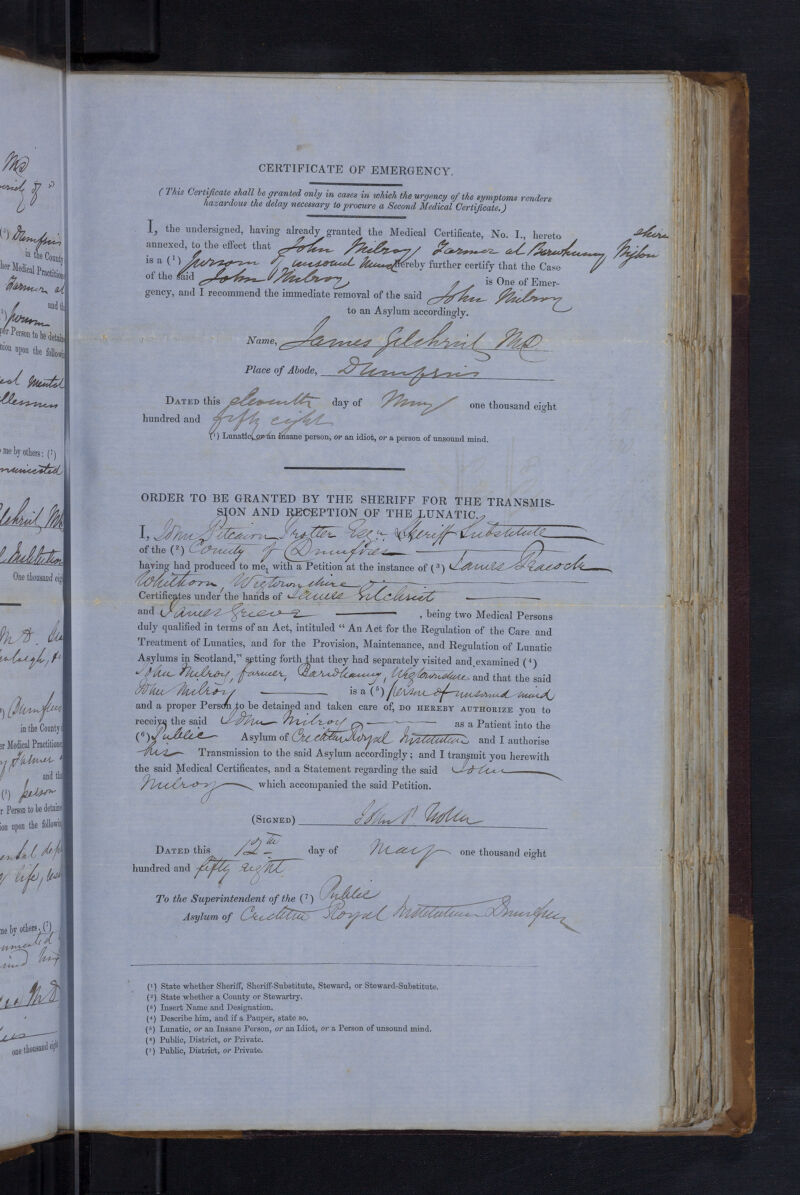 CERTIFICATE OF EMERGENCY.
(This Certificate shall be granted only in cases in which the urgency of the symptoms renders
hazardous the delay necessary to procure a Second Medical Certificate.)
I, the undersigned, having already granted the Medical Certificate, No. I., hereto
annexed, to the effect that John Milroy Farmer at
shire
is a (1) person of unsound mind hereby further certify that the Case
of the said John Milroy is One of Emer-
gency, and I recommend the immediate removal of the said John Milroy
to an Asylum accordingly.
Name, James Gilchrist MD
Place of Abode, Dumfries
DATED this eleventh day of May one thousand eight
hundred and fifty eight
(1) Lunatic, or an insane person, or an idiot, or a person of unsound mind.
ORDER TO BE GRANTED BY THE SHERIFF FOR THE TRANSMIS-
SION AND RECEPTION OF THE LUNATIC.
I, John Pitcairn Trotter Esqr. Sheriff Substitute
of the (2) County of Dumfries
having had produced to me, with a Petition at the instance of (3) James Peacock
Whithorn, Wigtownshire
Certificates under the hands of James Gilchrist
and James Grieve, being two Medical Persons
duly qualified in terms of an Act, intituled “ An Act for the Regulation of the Care and
Treatment of Lunatics, and for the Provision, Maintenance, and Regulation of Lunatic
Asylums in Scotland,” setting forth that they had separately visited and examined (4)
John Milroy, farmer, Barnhanny, Wigtownshire and that the said
John Milroy is a (5) person of unsound mind
and a proper Person to be detained and taken care of, DO HEREBY AUTHORIZE you to
receive the said John Milroy as a Patient into the
(6) Public Asylum of Crichton Royal Institution and I authorise
his Transmission to the said Asylum accordingly; and I transmit you herewith
the said Medical Certificates, and a Statement regarding the said John
Milroy which accompanied the said Petition.
(SIGNED) John P. Trotter
DATED this 12th day of May one thousand eight
hundred and fifty eight
To the Superintendent of the (7) Public
Asylum of Crichton Royal Institution Dumfries
(1) State whether Sheriff, Sheriff-Substitute, Steward, or Steward-Substitute.
(2) State whether a County or Stewartry.
(3) Insert Name and Designation.
(4) Describe him, and if a Pauper, state so.
(5) Lunatic, or an Insane Person, or an Idiot, or a Person of unsound mind.
(6) Public, District, or Private.
(7) Public, District, or Private.